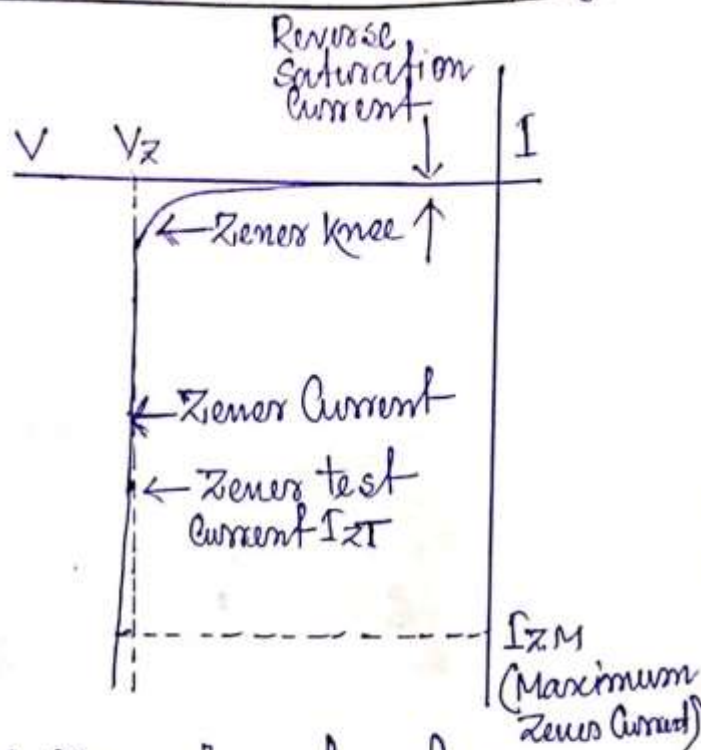 Reverse
Saturation
Current
V VZ I
Zener knee
Zener Current
Zener test
Current IZT
IZM
(Maximum
Zener Current)